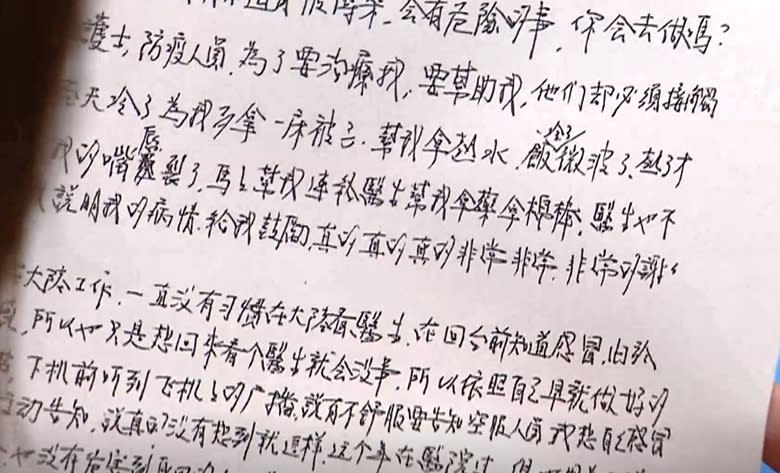 会有危险的事,你会去做嗎?
護士,防疫人員,為了要治療我,要幫助我,他们都必須接觸
天冷了為我多拿一床被子,幫我拿热水,飯冷了微波了,热了才
我的嘴唇裂了,馬上幫我連絡醫生幫我拿藥拿棉棒,醫生也不
說明我的病情,給我鼓勵,真的真的真的非常非常,非常的謝
大陸工作,一直沒有习慣在大陸看醫生,在回台前知道感冒,
所以也只是想回來看个醫生就会沒事,所以依照自己早就做好的
下机前听到飞机上的广播,說有不舒服要告知空服人員我想自己感冒
动告知,說真的沒有想到就這样,这个年在醫院过,
也沒在危害到